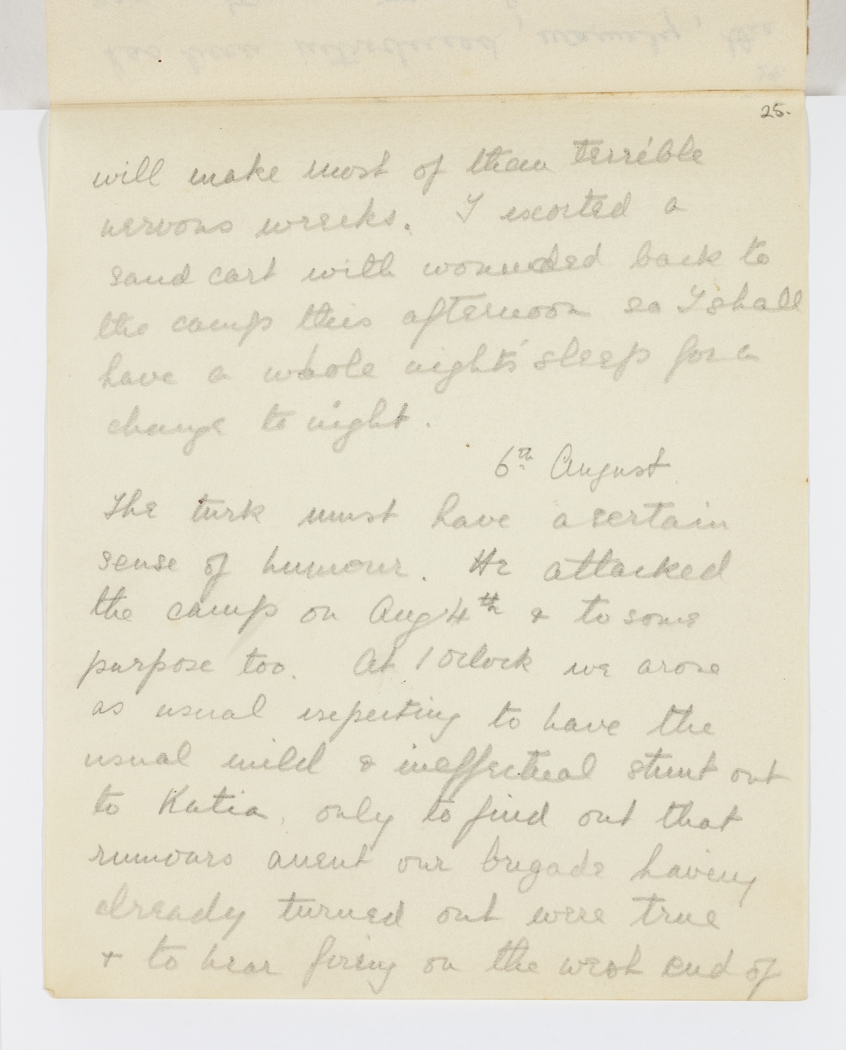 25.
will make most of them terrible
nervous wrecks. I escorted a
sand cart with wounded back to
the camp this afternoon so I shall
have a whole nights' sleep for a
change to night.
6th August
The turk must have a certain
sense of humour. He attacked
the camp on Aug 4th & to some
purpose too. At 1 oclock we arose
as usual expecting to have the
usual mild & ineffectual stunt out
to Katia, only to find out that
rumours anent our brigade having
already turned out were true
+ to hear firing on the west end of